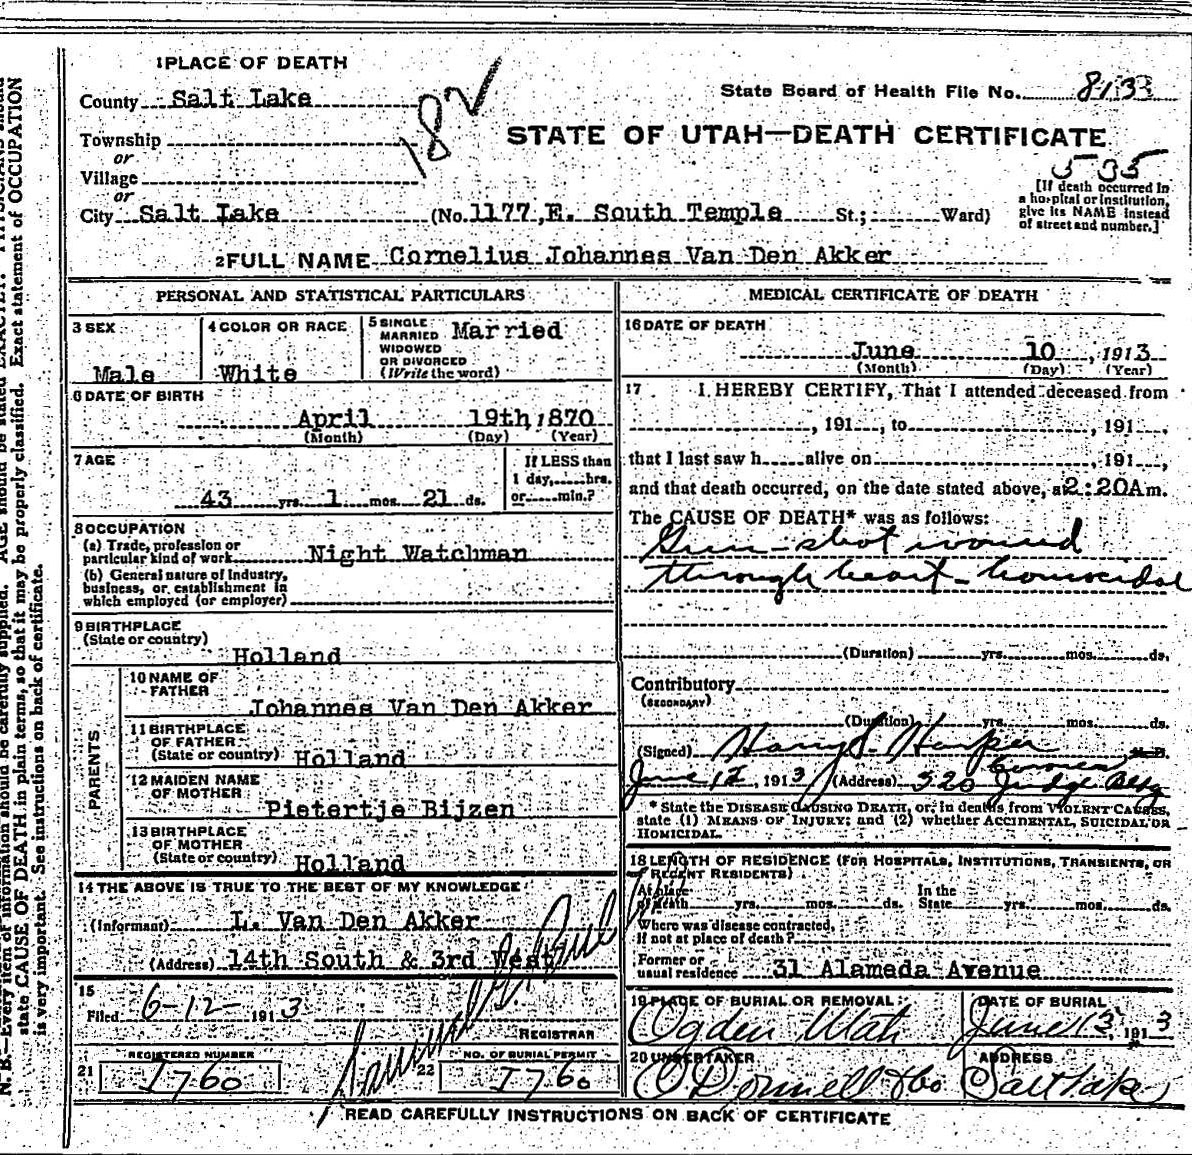 1 PLACE OF DEATH
County Salt Lake
182
State Board of Health File No. 813
STATE OF UTAH—DEATH CERTIFICATE
Township
or
Village
or
535
[If death occurred in
a hospital or institution,
give its NAME instead
of street and number.]
City Salt Lake (No. 1177, E. South Temple St.; Ward)
2 FULL NAME Cornelius Johannes Van Den Akker
PERSONAL AND STATISTICAL PARTICULARS
3 SEX
Male
4 COLOR OR RACE
White
5 SINGLE
MARRIED
WIDOWED
OR DIVORCED
(Write the word)
Married
6 DATE OF BIRTH
April 19th, 1870
(Month) (Day) (Year)
7 AGE
43 yrs. 1 mos. 21 ds.
If LESS than
1 day, hrs.
or min.?
8 OCCUPATION
(a) Trade, profession or
particular kind of work Night Watchman
(b) General nature of Industry,
business, or establishment in
which employed (or employer)
9 BIRTHPLACE
(State or country)
Holland
PARENTS
10 NAME OF
FATHER
Johannes Van Den Akker
11 BIRTHPLACE
OF FATHER
(State or country) Holland
12 MAIDEN NAME
OF MOTHER
Pietertje Bijzen
13 BIRTHPLACE
OF MOTHER
(State or country) Holland
14 THE ABOVE IS TRUE TO THE BEST OF MY KNOWLEDGE
(Informant) L. Van Den Akker
(Address) 14th South & 3rd West
15
Filed 6-12- 1913
Samuel G. Paul
REGISTRAR
21 REGISTERED NUMBER
1760
22 NO. OF BURIAL PERMIT
1760
MEDICAL CERTIFICATE OF DEATH
16 DATE OF DEATH
June 10, 1913
(Month) (Day) (Year)
17 I HEREBY CERTIFY, That I attended deceased from
, 191 , to , 191 ,
that I last saw h alive on , 191 ,
and that death occurred, on the date stated above, at 2:20A m.
The CAUSE OF DEATH* was as follows:
Gun-shot wound
through heart - homicidal
(Duration) yrs. mos. ds.
Contributory
(SECONDARY)
(Duration) yrs. mos. ds.
(Signed) Harry S. Harper M.D.
Coroner
June 12, 1913 (Address) 320 Judge Bldg
* State the DISEASE CAUSING DEATH, or, in deaths from VIOLENT CAUSES,
state (1) MEANS OF INJURY; and (2) whether ACCIDENTAL, SUICIDAL OR
HOMICIDAL.
18 LENGTH OF RESIDENCE (FOR HOSPITALS, INSTITUTIONS, TRANSIENTS, OR
RECENT RESIDENTS)
At place
of death yrs. mos. ds.
In the
State yrs. mos. ds.
Where was disease contracted,
if not at place of death?
Former or
usual residence 31 Alameda Avenue
19 PLACE OF BURIAL OR REMOVAL
Ogden Utah
DATE OF BURIAL
June 13, 1913
20 UNDERTAKER
O'Donnell & Co
ADDRESS
Salt Lake
READ CAREFULLY INSTRUCTIONS ON BACK OF CERTIFICATE
N. B.—Every item of information should be carefully supplied. AGE should be stated EXACTLY. PHYSICIANS should
state CAUSE OF DEATH in plain terms, so that it may be properly classified. Exact statement of OCCUPATION
is very important. See instructions on back of certificate.